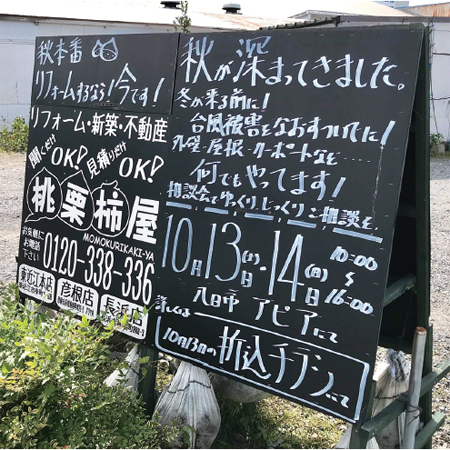 秋本番
リフォームするなら!今です!
リフォーム・新築・不動産
聞くだけOK!
見積りだけOK!
桃栗柿屋
MOMOKURIKAKI-YA
お気軽に
お電話
下さい
0120-338-336
東近江本店
彦根店
長浜店
秋が深まってきました。
冬が来る前に!
台風被害をなおすついでに!
外壁・屋根・カーポートなど…
何でもやってます!
相談会でゆっくりじっくりご相談を。
10月13日(日)・14日(月) 10:00〜16:00
八日市 アピアにて
詳しくは
10月13日の折込チラシにて